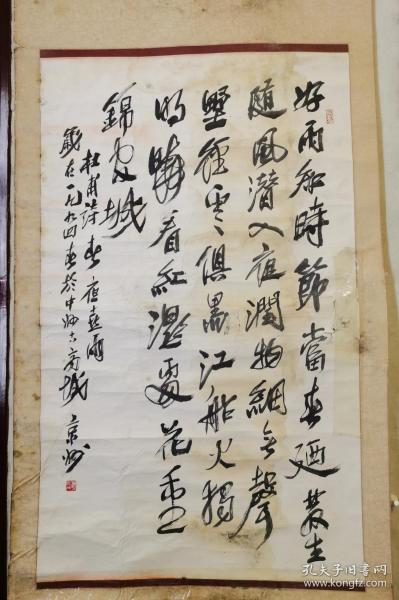 好雨知時節當春廼發生
隨風潛入夜潤物細无聲
野徑雲俱黑江船火獨
明曉看紅濕處花重
錦官城
杜甫詩春夜喜雨
歲在一九九四春於中州古商城
孔夫子旧书网
www.kongfz.com